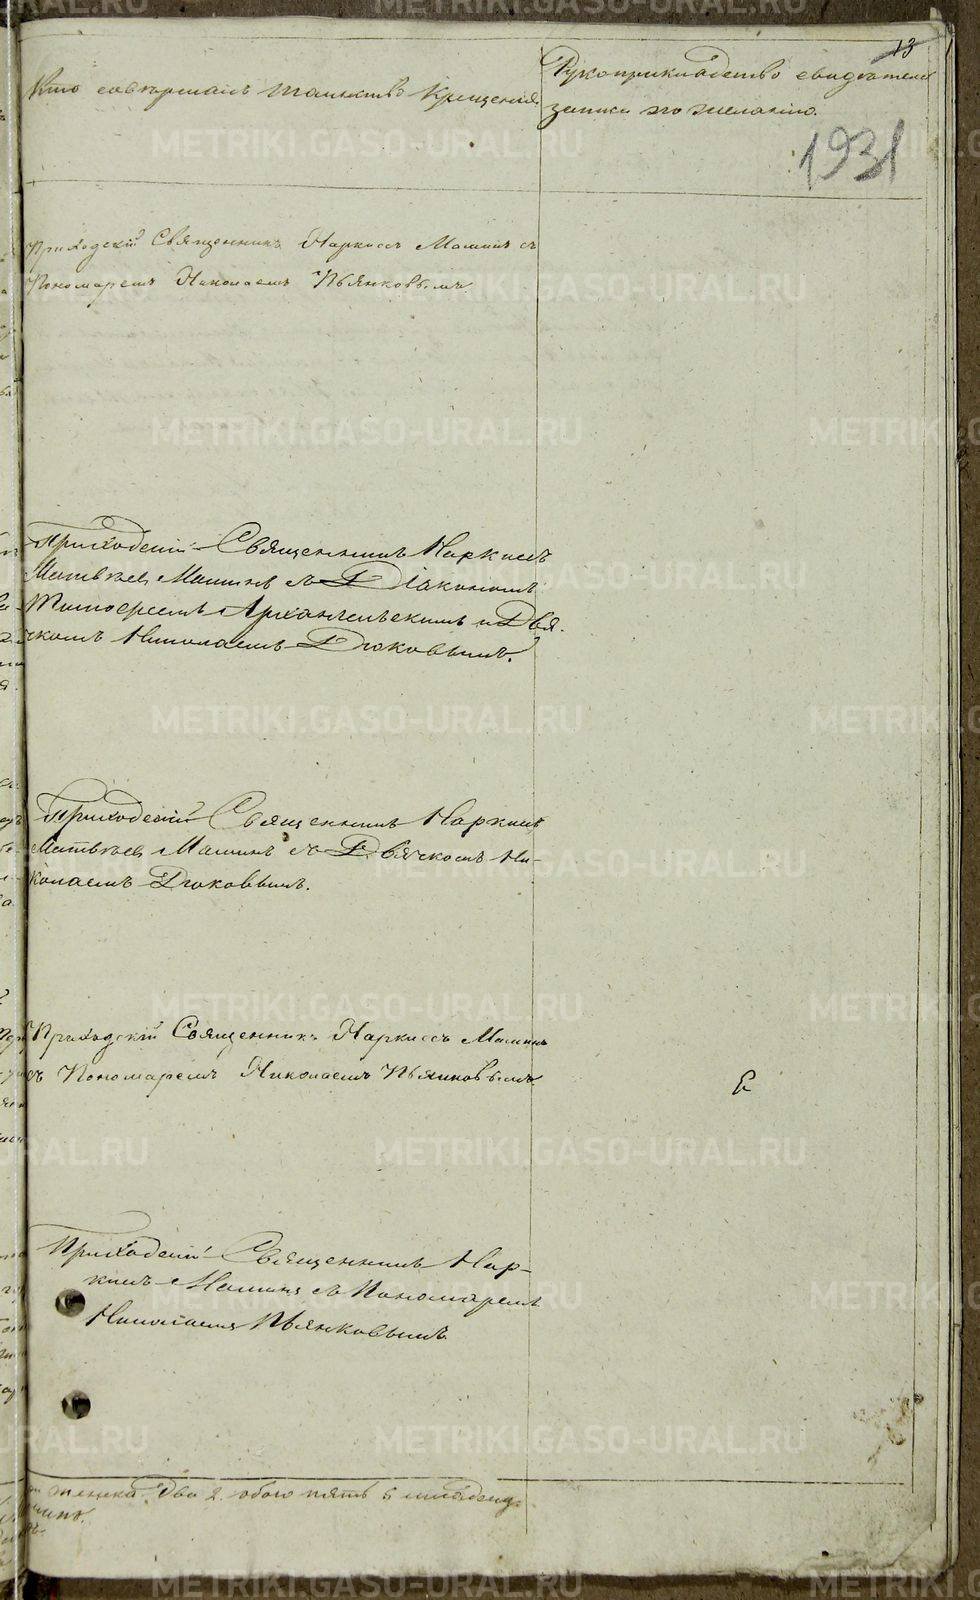 13
Кто совершалъ таинство крещенія.
Рукоприкладство свидѣтелей
записи по желанію.
1931
Приходскій Священникъ Наркиссъ Маминъ съ
Пономаремъ Николаемъ Пьянковымъ
Приходскій Священникъ Наркиссъ
Матвѣевъ Маминъ съ Діакономъ
Тимофеемъ Архангельскимъ и Дья-
чкомъ Николаемъ Дюковымъ.
Приходскій Священникъ Наркисъ
Матвѣевъ Маминъ съ Дьячкомъ Ни-
колаемъ Дюковымъ.
Приходскій Священникъ Наркиссъ Маминъ
съ Пономаремъ Николаемъ Пьянковымъ
Приходскій Священникъ Нар-
кисъ Маминъ съ Пономаремъ
Николаемъ Пьянковымъ
женска два 2. обоего пять 5
METRIKI.GASO-URAL.RU